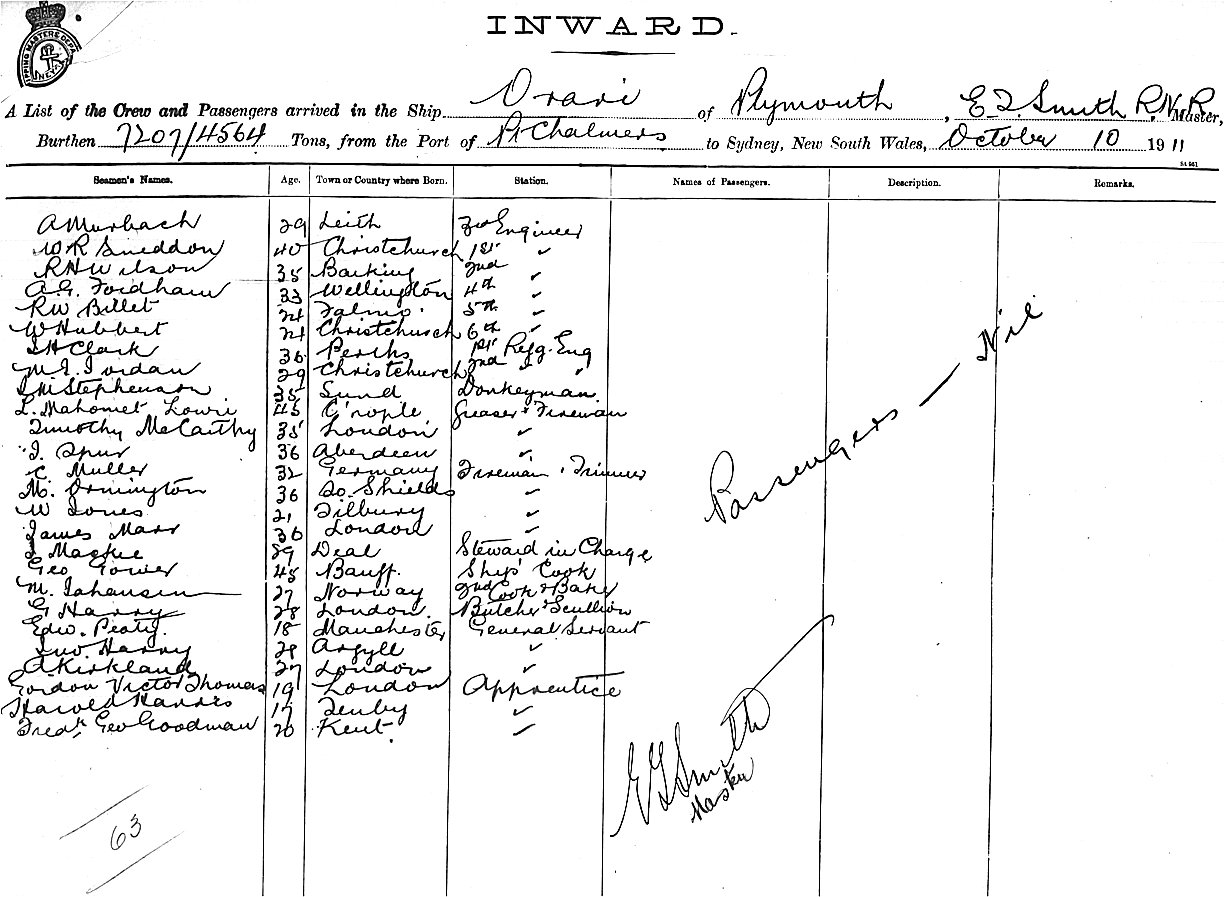 INWARD.
A List of the Crew and Passengers arrived in the Ship Orari of Plymouth, E. J. Smith R.N.R Master,
Burthen 7207/4564 Tons, from the Port of Pt Chalmers to Sydney, New South Wales, October 10 1911
Seamen's Names. Age. Town or Country where Born. Station. Names of Passengers. Description. Remarks.
A Murbach 29 Leith Engineer
W R Sneddon 40 Christchurch 1st ✓
R H Wilson 35 Barking 2nd ✓
A.G. Fordham 33 Wellington 4th ✓
RW Billet 24 5th ✓
W Hubbert 21 Christchurch 6th ✓
H Clark 36 Perths 1st Refg. Eng
M. J. Jordan 29 Christchurch 2nd " "
Stephenson 35 Sund Donkeyman
L. Mahomet Lowri 45 C'nople Greaser & Fireman
Timothy McCarthy 35 London ✓
J. Spur 36 Aberdeen ✓
C. Muller 32 Germany Fireman & Trimmer
M. Ormington 36 So. Shields ✓
W Jones 21 Tilbury ✓
James Marr 36 London ✓
Mackie 39 Deal Steward in Charge
Geo Gower 48 Banff. Ships' Cook
M. Johansen 27 Norway 2nd Cook & Baker
G Harry 28 London. Butcher & Scullion
Edw. Peaty. 18 Manchester General Servant
Jno Harry 28 Argyll ✓
A Kirkland 27 London ✓
Gordon Victor Thomas 19 London Apprentice
Harold Harris 17 Tenby ✓
Fredk. Geo Goodman 20 Kent. ✓
Passengers — Nil
E J Smith
Master
63